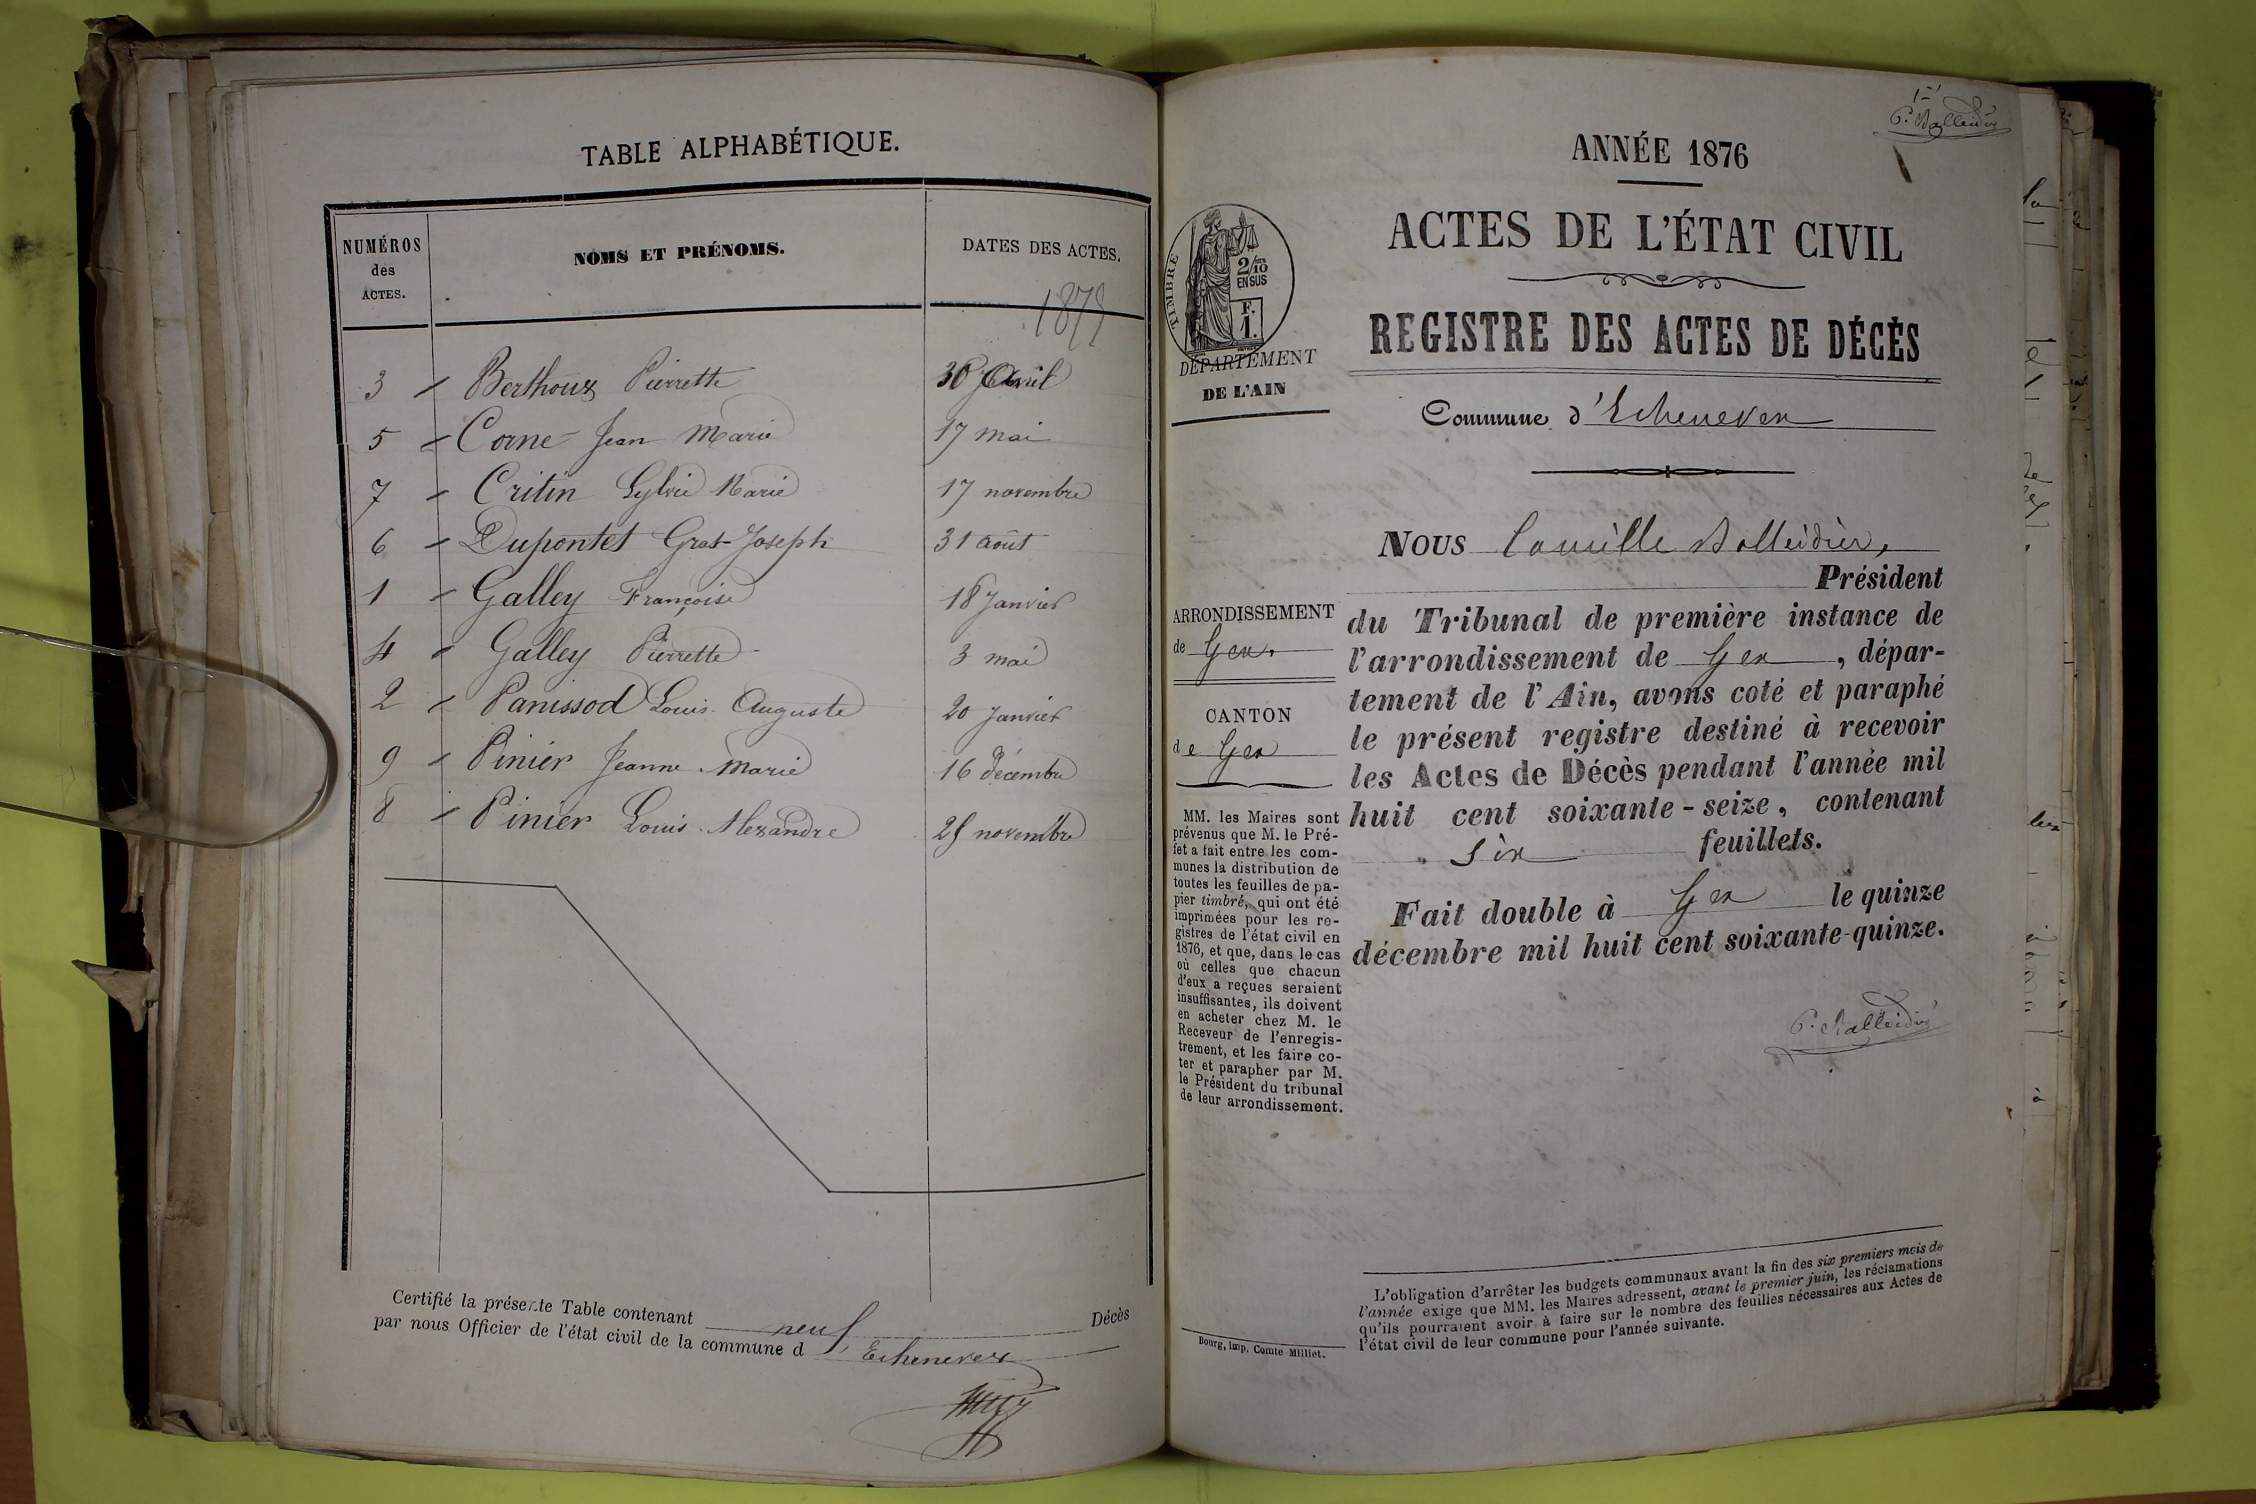 TABLE ALPHABÉTIQUE.
NUMÉROS
des
ACTES.
NOMS ET PRÉNOMS.
DATES DES ACTES.
3 Berthoux Pierrette 30 Avril
5 Corne Jean Marie 17 mai
7 Critin Sylvie Marie 17 novembre
6 Dupontet Gros-Joseph 31 août
1 Galley Françoise 18 Janvier
4 Galley Pierrette 3 mai
2 Panissod Louis Auguste 20 Janvier
9 Pinier Jeanne Marie 16 décembre
8 Pinier Louis Alexandre novembre
Certifié la présente Table contenant neuf Décès
par nous Officier de l'état civil de la commune d Echenevex
ANNÉE 1876
ACTES DE L'ÉTAT CIVIL
REGISTRE DES ACTES DE DÉCÈS
TIMBRE
2/10
EN SUS
F.
1.
DÉPARTEMENT
DE L'AIN
Commune d'Echenevex
Nous Camille Balleidier,
Président
ARRONDISSEMENT
de Gex
CANTON
de Gex
du Tribunal de première instance de
l'arrondissement de Gex, dépar-
tement de l'Ain, avons coté et paraphé
le présent registre destiné à recevoir
les Actes de Décès pendant l'année mil
huit cent soixante-seize, contenant
six feuillets.
Fait double à Gex le quinze
décembre mil huit cent soixante-quinze.
C. Balleidier
MM. les Maires sont
prévenus que M. le Pré-
fet a fait entre les com-
munes la distribution de
toutes les feuilles de pa-
pier timbré, qui ont été
imprimées pour les re-
gistres de l'état civil en
1876, et que, dans le cas
où celles que chacun
d'eux a reçues seraient
insuffisantes, ils doivent
en acheter chez M. le
Receveur de l'enregis-
trement, et les faire co-
ter et parapher par M.
le Président du tribunal
de leur arrondissement.
L'obligation d'arrêter les budgets communaux avant la fin des six premiers mois de
l'année exige que MM. les Maires adressent, avant le premier juin, les réclamations
qu'ils pourraient avoir à faire sur le nombre des feuilles nécessaires aux Actes de
l'état civil de leur commune pour l'année suivante.
Bourg, imp. Comte Milliet.